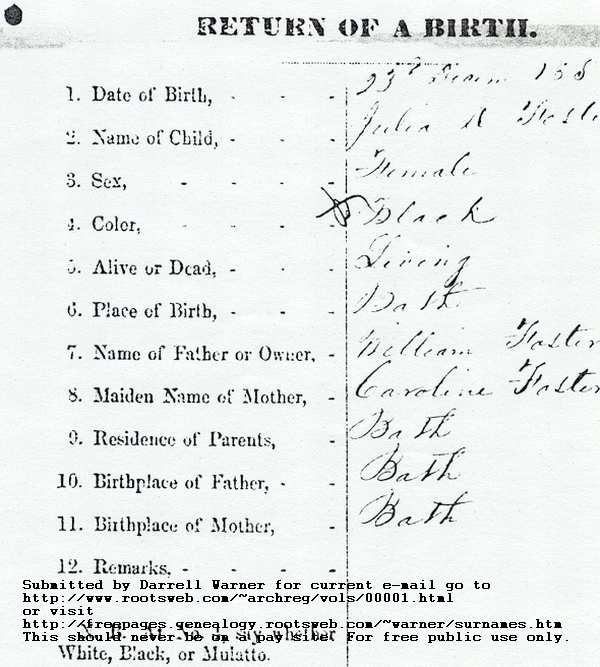 RETURN OF A BIRTH.
1. Date of Birth, - - - 23d
2. Name of Child, - - - Julia
3. Sex, - - - - Female
4. Color, - - - - Black
5. Alive or Dead, - - - Living
6. Place of Birth, - - - Bath
7. Name of Father or Owner, - William Foster
8. Maiden Name of Mother, - Caroline Foster
9. Residence of Parents, - Bath
10. Birthplace of Father, - - Bath
11. Birthplace of Mother, - Bath
12. Remarks, - - - -
Submitted by Darrell Warner for current e-mail go to
http://www.rootsweb.com/~archreg/vols/00001.html
or visit
http://freepages.genealogy.rootsweb.com/~warner/surnames.htm
This should never be on a pay site. For free public use only.
say whether
White, Black, or Mulatto.